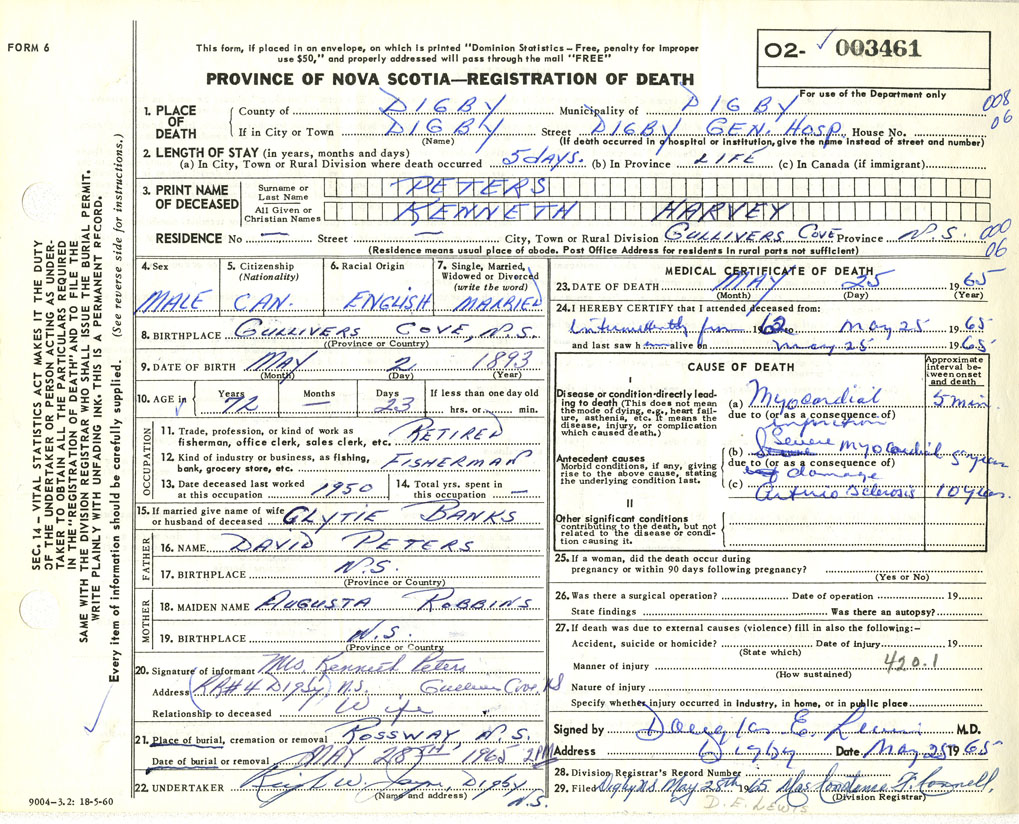 FORM 6
This form, if placed in an envelope, on which is printed "Dominion Statistics – Free, penalty for improper
use $50," and properly addressed will pass through the mail "FREE"
PROVINCE OF NOVA SCOTIA—REGISTRATION OF DEATH
O2- 003461
For use of the Department only
008
06
1. PLACE OF DEATH
County of DIGBY Municipality of DIGBY
If in City or Town DIGBY Street DIGBY GEN. HOSP. House No.
(Name) (If death occurred in a hospital or institution, give the name instead of street and number)
2. LENGTH OF STAY (in years, months and days)
(a) In City, Town or Rural Division where death occurred 5 DAYS. (b) In Province LIFE (c) In Canada (if immigrant)
3. PRINT NAME OF DECEASED
Surname or Last Name PETERS
All Given or Christian Names KENNETH HARVEY
RESIDENCE No — Street — City, Town or Rural Division GULLIVERS COVE Province N.S.
000
06
(Residence means usual place of abode. Post Office Address for residents in rural parts not sufficient)
4. Sex MALE
5. Citizenship (Nationality) CAN.
6. Racial Origin ENGLISH
7. Single, Married, Widowed or Divorced (write the word) MARRIED
8. BIRTHPLACE GULLIVERS COVE, N.S.
(Province or Country)
9. DATE OF BIRTH MAY 2 1893
(Month) (Day) (Year)
10. AGE in Years 72 Months — Days 23 If less than one day old hrs. or min.
OCCUPATION
11. Trade, profession, or kind of work as fisherman, office clerk, sales clerk, etc. RETIRED
12. Kind of industry or business, as fishing, bank, grocery store, etc. FISHERMAN
13. Date deceased last worked at this occupation 1950
14. Total yrs. spent in this occupation —
15. If married give name of wife or husband of deceased CLYTIE BANKS
FATHER
16. NAME DAVID PETERS
17. BIRTHPLACE N.S.
(Province or Country)
MOTHER
18. MAIDEN NAME AUGUSTA ROBBINS
19. BIRTHPLACE N.S.
(Province or Country
20. Signature of informant Mrs. Kenneth Peters
Address RR#4 Digby, N.S. Gullivers Cove, NS
Relationship to deceased Wife
21. Place of burial, cremation or removal ROSSWAY, N.S.
Date of burial or removal MAY 28TH 1965 2PM
22. UNDERTAKER W. Digby N.S.
(Name and address)
9004–3.2: 18-5-60
MEDICAL CERTIFICATE OF DEATH
23. DATE OF DEATH MAY 25 1965
(Month) (Day) (Year)
24. I HEREBY CERTIFY that I attended deceased from:
Intermittently from 1962 to May 25 1965
and last saw h alive on May 25 1965
CAUSE OF DEATH
Approximate interval between onset and death
I
Disease or condition directly leading to death (This does not mean the mode of dying, e.g., heart failure, asthenia, etc. It means the disease, injury, or complication which caused death.)
(a) Myocardial infarction 5 min
due to (or as a consequence of)
Antecedent causes
Morbid conditions, if any, giving rise to the above cause, stating the underlying condition last.
(b) Severe myocardial damage years
due to (or as a consequence of)
(c) Arterio Sclerosis 10 years
II
Other significant conditions
contributing to the death, but not related to the disease or condition causing it.
25. If a woman, did the death occur during
pregnancy or within 90 days following pregnancy?
(Yes or No)
26. Was there a surgical operation? Date of operation 19
State findings Was there an autopsy?
27. If death was due to external causes (violence) fill in also the following:–
Accident, suicide or homicide? Date of injury 19
(State which)
Manner of injury 420.1
(How sustained)
Nature of injury
Specify whether injury occurred in industry, in home, or in public place
Signed by Douglas E. Lewis M.D.
Address Digby Date May 25 1965
28. Division Registrar's Record Number
29. Filed Digby NS May 28th 1965 Mrs Constance F. Connell,
(Division Registrar)
D. E. LEWIS
SEC. 14 – VITAL STATISTICS ACT MAKES IT THE DUTY
OF THE UNDERTAKER OR PERSON ACTING AS UNDER-
TAKER TO OBTAIN ALL THE PARTICULARS REQUIRED
IN THE "REGISTRATION OF DEATH" AND TO FILE THE
SAME WITH THE DIVISION REGISTRAR WHO SHALL ISSUE THE BURIAL PERMIT.
WRITE PLAINLY WITH UNFADING INK. THIS IS A PERMANENT RECORD.
Every item of information should be carefully supplied. (See reverse side for instructions.)